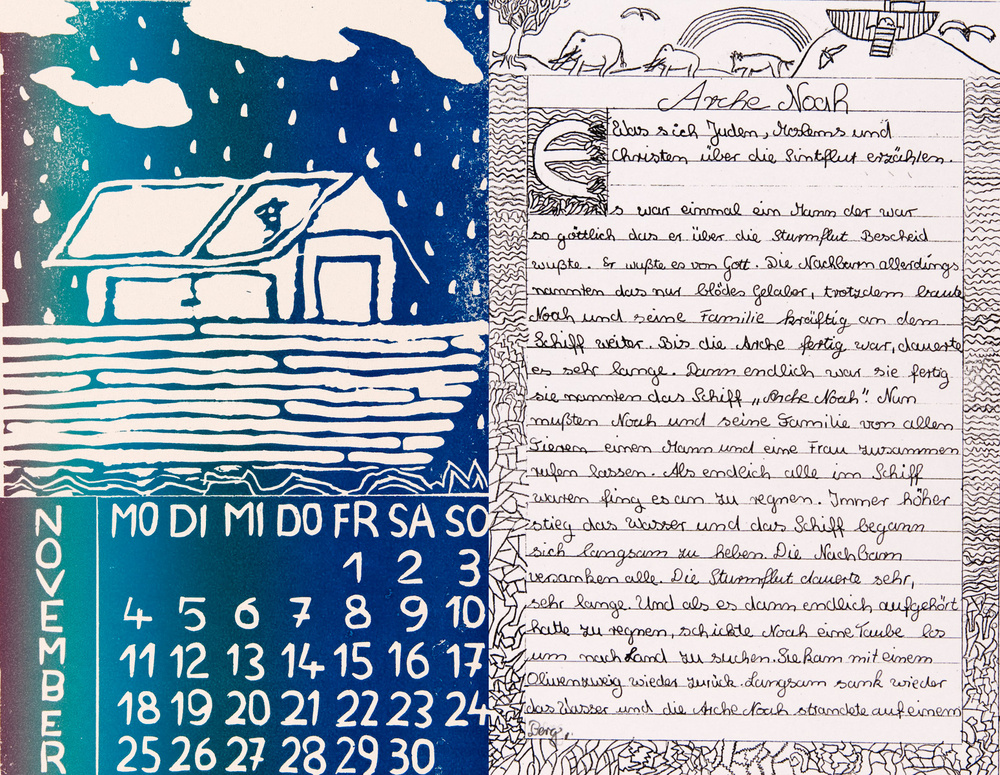 NOVEMBER
MO DI MI DO FR SA SO
1 2 3
4 5 6 7 8 9 10
11 12 13 14 15 16 17
18 19 20 21 22 23 24
25 26 27 28 29 30
Arche Noah
Was sich Juden, Moslems und
Christen über die Sintflut erzählen.
Es war einmal ein Mann der war
so göttlich das er über die Sturmflut Bescheid
wußte. Er wußte es von Gott. Die Nachbarn allerdings
nannten das nur blödes Gelaber, trotzdem baute
Noah und seine Familie kräftig an dem
Schiff weiter. Bis die Arche fertig war, dauerte
es sehr lange. Dann endlich war sie fertig
sie nannten das Schiff „Arche Noah". Nun
mußten Noah und seine Familie von allen
Tieren einen Mann und eine Frau zusammen
rufen lassen. Als endlich alle im Schiff
waren fing es an zu regnen. Immer höher
stieg das Wasser und das Schiff begann
sich langsam zu heben. Die Nachbarn
versanken alle. Die Sturmflut dauerte sehr,
sehr lange. Und als es dann endlich aufgehört
hatte zu regnen, schickte Noah eine Taube los
um nach Land zu suchen. Sie kam mit einem
Olivenzweig wieder zurück. Langsam sank wieder
das Wasser und die Arche Noah strandete auf einem
Berg.